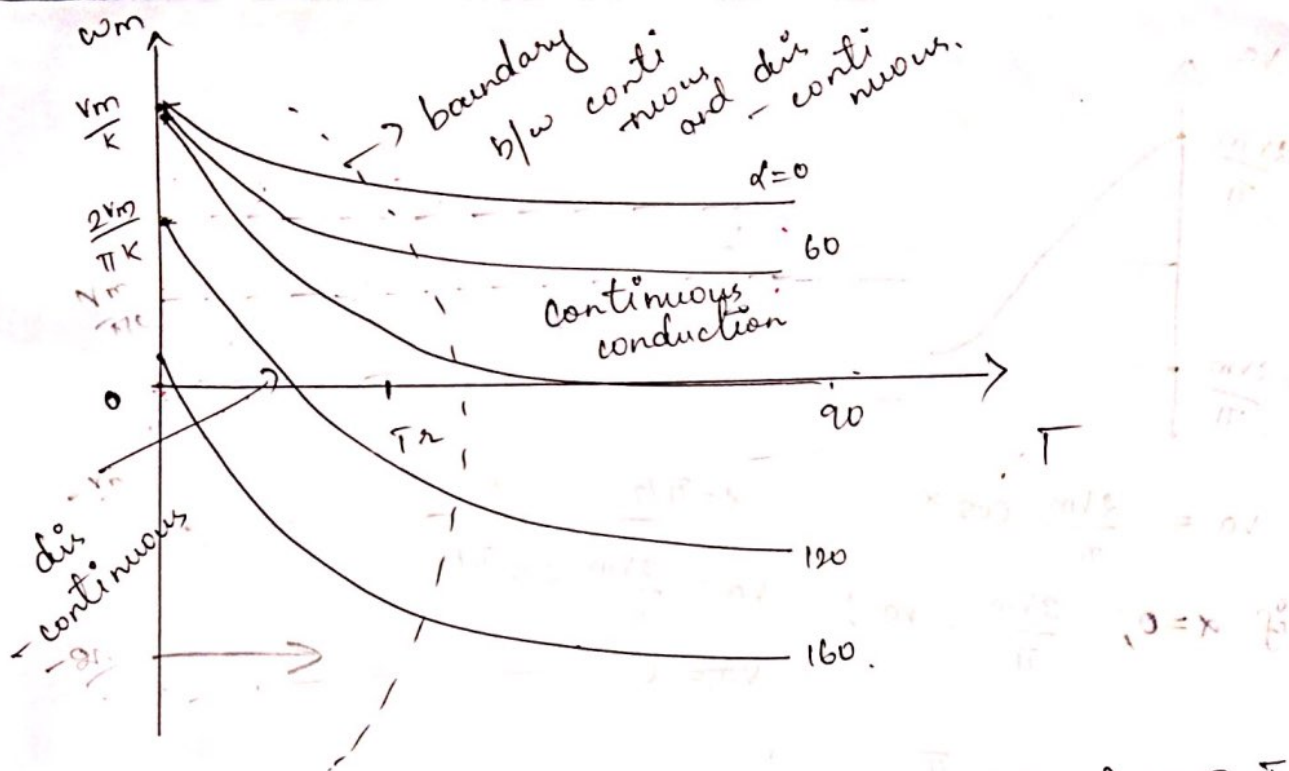 ωm
Vm
K
boundary
b/w conti
nuous
and dis
- conti
nuous.
α=0
2Vm
πK
60
Vm
continuous
conduction
0
90
Tr
T
dis
- continuous
120
160.